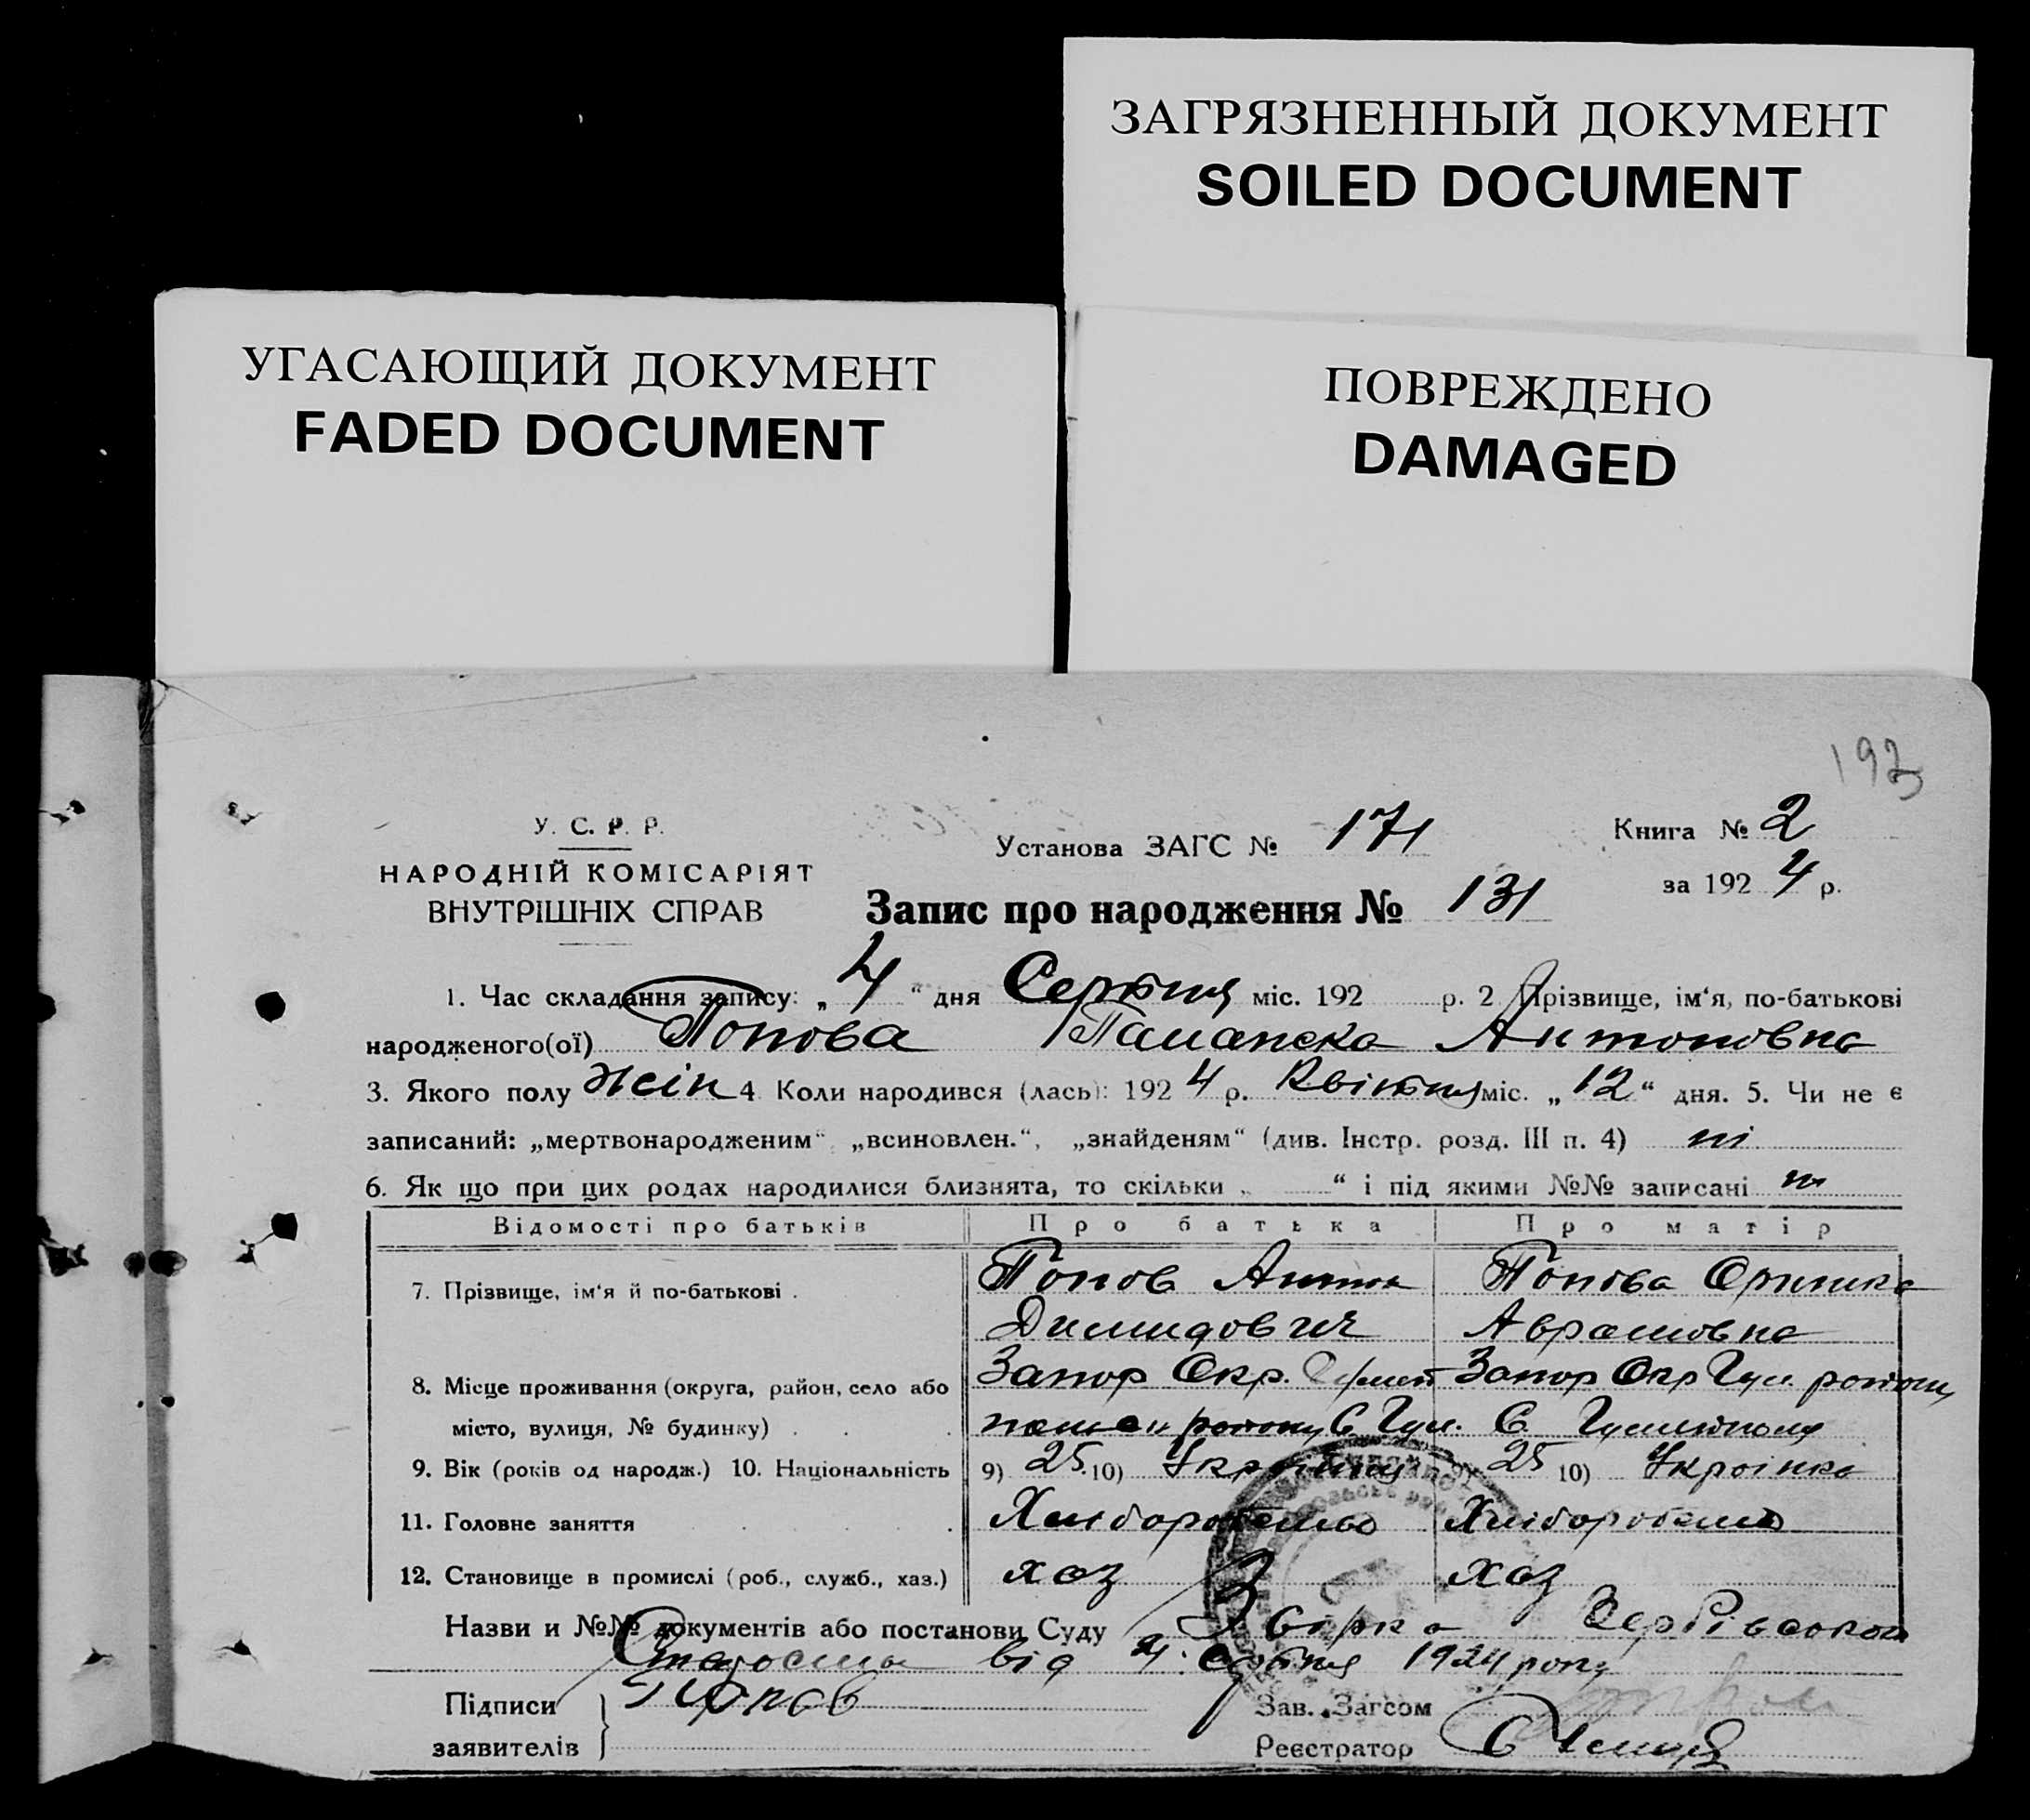 ЗАГРЯЗНЕННЫЙ ДОКУМЕНТ
SOILED DOCUMENT
УГАСАЮЩИЙ ДОКУМЕНТ
FADED DOCUMENT
ПОВРЕЖДЕНО
DAMAGED
193
У. С. Р. Р.
НАРОДНІЙ КОМІСАРІЯТ
ВНУТРІШНІХ СПРАВ
Установа ЗАГС № 171
Книга № 2
за 192 4 р.
Запис про народження № 131
1. Час складання запису: „ 4 “ дня Серпня міс. 192 р. 2 Прізвище, ім‘я, по-батькові
народженого(ої) Попова Палажка Антоновна
3. Якого полу жін 4 Коли народився (лась): 192 4 р. Квітня міс. „ 12 “ дня. 5. Чи не є
записаний: „мертвонародженим“, „всиновлен.“, „знайденям“ (див. Інстр. розд. III п. 4) ні
6. Як що при цих родах народилися близнята, то скільки „ “ і під якими №№ записані ні
Відомості про батьків Про батька Про матір
7. Прізвище, ім‘я й по-батькові . Попов Антон Попова Оришка
Димидович Аврамовна
8. Місце проживання (округа, район, село або Запор Окр. Запор Окр Гул. району
місто, вулиця, № будинку) . . . району С Гул. С
9. Вік (років од народж.) 10. Національність 9) 25 10) 25 10) Українка
11. Головне заняття . . . . Хліборобство Хліборобство
12. Становище в промислі (роб., служб., хаз.) хаз хаз
Назви и №№ документів або постанови Суду
від 4. Серпня 1924 року
Підписи Попов Зав. Загсом
заявителів Реєстратор